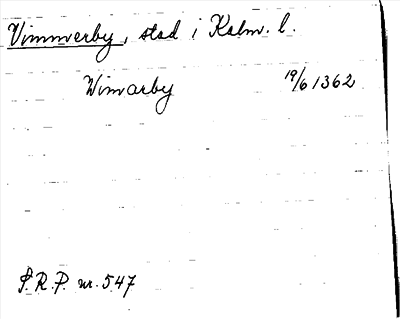 Vimmerby, stad i Kalm. l.
Wimarby 19/6 1362
S.R.P. nr. 547